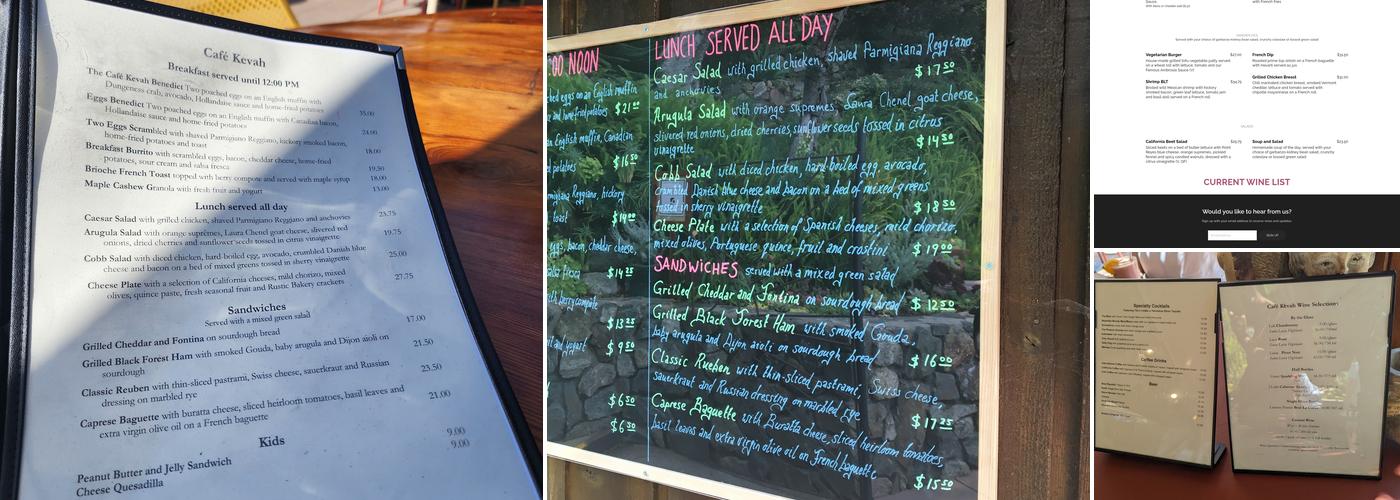 Café Kevah
Breakfast served until 12:00 PM
The Café Kevah Benedict Two poached eggs on an English muffin with
Dungeness crab, avocado, Hollandaise sauce and home-fried potatoes
35.00
Eggs Benedict Two poached eggs on an English muffin with Canadian bacon,
Hollandaise sauce and home-fried potatoes
24.00
Two Eggs Scrambled with shaved Parmigiano Reggiano, hickory smoked bacon,
home-fried potatoes and toast
18.00
Breakfast Burrito with scrambled eggs, bacon, cheddar cheese, home-fried
potatoes, sour cream and salsa fresca
19.50
Brioche French Toast topped with berry compote and served with maple syrup 18.00
Maple Cashew Granola with fresh fruit and yogurt 13.00
Lunch served all day
Caesar Salad with grilled chicken, shaved Parmigiano Reggiano and anchovies 23.75
Arugula Salad with orange suprêmes, Laura Chenel goat cheese, slivered red
onions, dried cherries and sunflower seeds tossed in citrus vinaigrette
19.75
Cobb Salad with diced chicken, hard-boiled egg, avocado, crumbled Danish blue
cheese and bacon on a bed of mixed greens tossed in sherry vinaigrette
25.00
Cheese Plate with a selection of California cheeses, mild chorizo, mixed
olives, quince paste, fresh seasonal fruit and Rustic Bakery crackers
27.75
Sandwiches
Served with a mixed green salad
Grilled Cheddar and Fontina on sourdough bread 17.00
Grilled Black Forest Ham with smoked Gouda, baby arugula and Dijon aioli on
sourdough
21.50
Classic Reuben with thin-sliced pastrami, Swiss cheese, sauerkraut and Russian
dressing on marbled rye
23.50
Caprese Baguette with buratta cheese, sliced heirloom tomatoes, basil leaves and
extra virgin olive oil on a French baguette
21.00
Kids
Peanut Butter and Jelly Sandwich 9.00
Cheese Quesadilla 9.00
:00 NOON
ched eggs on an English muffin
e and home fried potatoes $21.50
an English muffin, Canadian
potatoes $16.50
migiana Reggiano, hickory
toast $14.00
eggs, bacon, cheddar cheese,
salsa fresca $14.25
ith berry compote
$13.25
it and yogurt $9.50
$6.50
$6.50
LUNCH SERVED ALL DAY
Caesar Salad with grilled chicken, shaved Parmigiana Reggiano
and anchovies $17.50
Arugula Salad with orange supremes, Laura Chenel goat cheese,
slivered red onions, dried cherries sunflower seeds tossed in citrus
vinaigrette $14.50
Cobb Salad with diced chicken, hard-boiled egg, avocado,
crumbled Danish blue cheese and bacon on a bed of mixed greens
tossed in sherry vinaigrette $18.50
Cheese Plate with a selection of Spanish cheeses, mild chorizo,
mixed olives, Portuguese quince, fruit and crostini $19.00
SANDWICHES served with a mixed green salad
Grilled Cheddar and Fontina on sourdough bread $12.50
Grilled Black Forest Ham with smoked Gouda,
baby arugula and Dijon aioli on sourdough bread $16.00
Classic Rueben with thin-sliced pastrami, Swiss cheese,
sauerkraut and Russian dressing on marbled rye $17.25
Caprese Baguette with Buratta cheese, sliced heirloom tomatoes,
basil leaves and extra virgin olive oil on French baguette
$15.50
Sauce.
with French fries
SANDWICHES
Vegetarian Burger
House-made grilled tofu-vegetable patty served
on a wheat roll with lettuce, tomato and our
Famous Ambrosia Sauce (V)
French Dip
Roasted prime top sirloin on a French baguette
with Havarti served au jus
Shrimp BLT
Broiled wild Mexican shrimp with hickory
smoked bacon, green leaf lettuce, tomato jam
and basil aioli served on a French roll
Grilled Chicken Breast
Chili marinated chicken breast, smoked Vermont
cheddar, lettuce and tomato served with
chipotle mayonnaise on a French roll
SALADS
California Beet Salad
Soup and Salad
Homemade soup of the day, served with your
choice of garbanzo-kidney bean salad, crunchy
coleslaw or tossed green salad
CURRENT WINE LIST
Would you like to hear from us?
Sign up with your email address to receive news and updates.
SIGN UP
Specialty Cocktails
Coffee Drinks
Beer
Café Kevah Wine Selection
By the Glass
Half Bottles